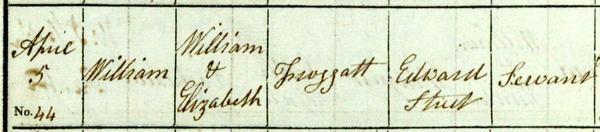 April
5
No. 44
William
William
&
Elizabeth
Froggatt
Edward
Street
Servant